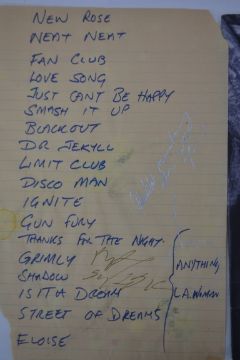 NEW ROSE
NEAT NEAT
FAN CLUB
LOVE SONG
JUST CANT BE HAPPY
SMASH IT UP
BLACKOUT
DR JEKYLL
LIMIT CLUB
DISCO MAN
IGNITE
GUN FURY
THANKS FOR THE NIGHT.
GRIMLY
SHADOW
IS IT A DREAM
STREET OF DREAMS
ELOISE
ANYTHING
L.A. WOMAN